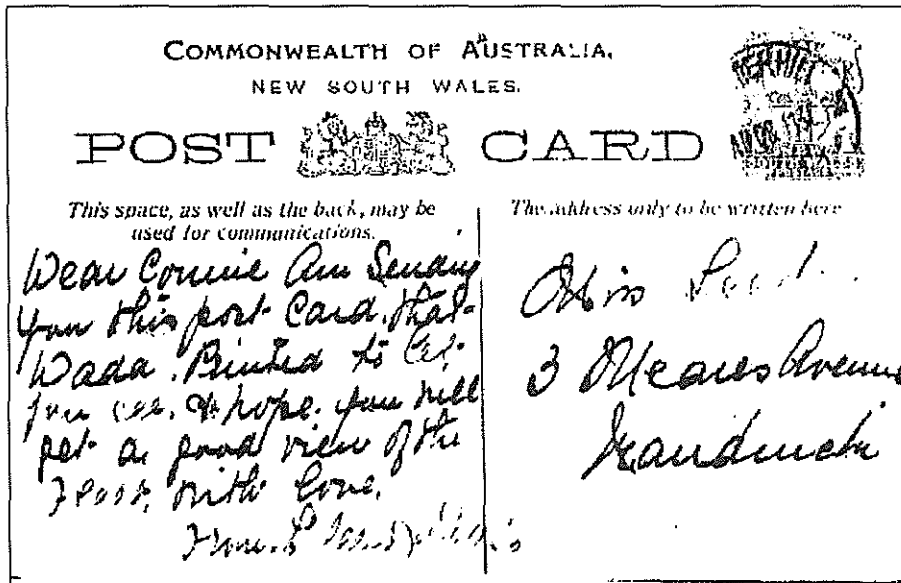 COMMONWEALTH OF AUSTRALIA.
NEW SOUTH WALES.
POST CARD
This space, as well as the back, may be
used for communications.
The address only to be written here
Dear Connie Am Sending
you this post Card. that
Dada. Printed to
you hope. you will
get a good view of the
Fleet, with love.
from
Miss
3 Meares Avenue
Randwick